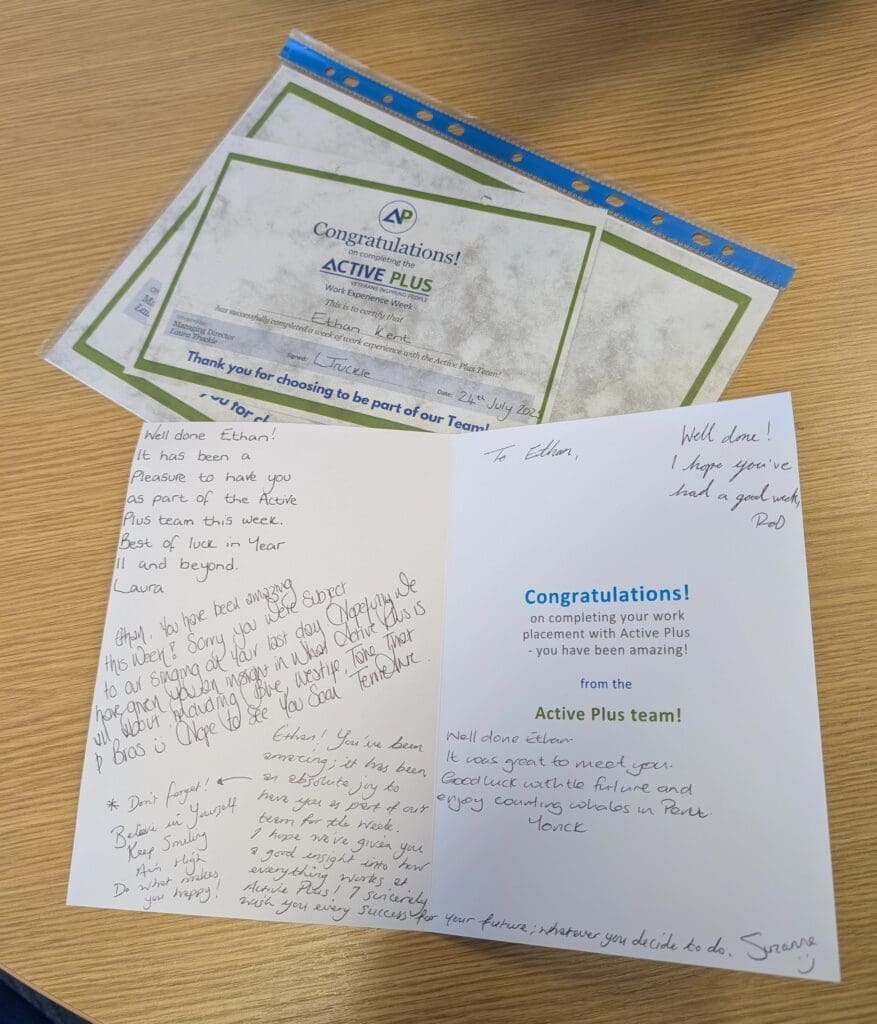 AP
Congratulations!
on completing the
ACTIVE PLUS
VETERANS INSPIRING PEOPLE
Work Experience Week
This is to certify that
Ethan Kent
has successfully completed a week of work experience with the Active Plus Team!
Managing Director
Laura Truckle
Signed: LTruckle
Date: 24th July 202
Thank you for choosing to be part of our Team!
Well done Ethan!
It has been a
Pleasure to have you
as part of the Active
Plus team this week.
Best of luck in Year
11 and beyond.
Laura
Ethan, You have been amazing
this week! Sorry you were subject
to our singing on your last day. Hopefully we
have given you an insight in what Active Plus is
all about including
Hope to See You Soon
Ethan! You've been
amazing; it has been
an absolute joy to
have you as part of our
team for the week.
I hope we've given you
a good insight into how
everything works at
Active Plus! I sincerely
wish you every success for your future; whatever you decide to do. Suzanne
* Don't forget!
Believe in Yourself
Keep Smiling
Aim High
Do what makes
you happy!
To Ethan,
Well done!
I hope you've
had a good week,
Rod
Congratulations!
on completing your work
placement with Active Plus
- you have been amazing!
from the
Active Plus team!
Well done Ethan
It was great to meet you.
Good luck with the future and
enjoy counting whales in
Yorick